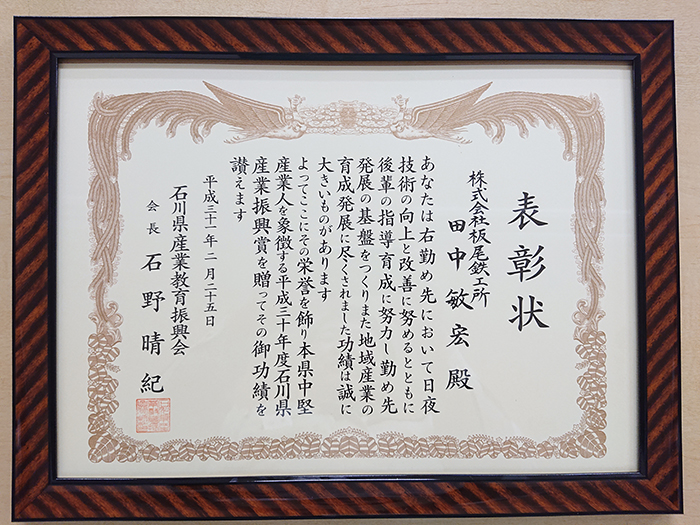 表彰状
株式会社板尾鉄工所
田中敏宏殿
あなたは右勤め先において日夜
技術の向上と改善に努めるとともに
後輩の指導育成に努力し勤め先
発展の基盤をつくりまた地域産業の
育成発展に尽くされました功績は誠に
大きいものがあります
よってここにその栄誉を飾り本県中堅
産業人を象徴する平成三十年度石川県
産業振興賞を贈ってその御功績を
讃えます
平成三十一年二月二十五日
石川県産業教育振興会
会長 石野晴紀